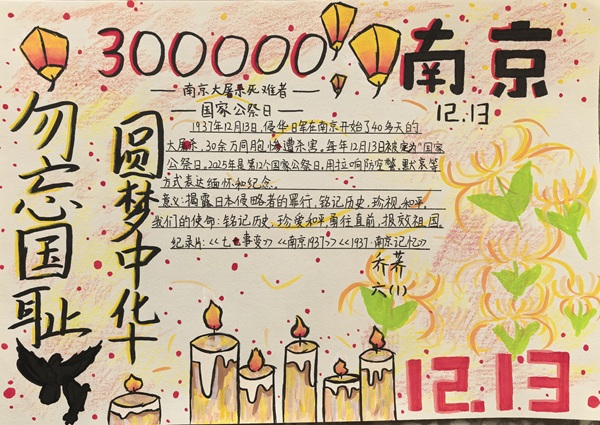 300000
南京
12.13
南京大屠杀死难者
国家公祭日
勿忘国耻
圆梦中华
1937年12月13日,侵华日军在南京开始了40多天的
大屠杀,30余万同胞惨遭杀害,每年12月13日被定为"国家
公祭日,2025年是第12个国家公祭日,用拉响防空警,默哀等
方式表达缅怀和纪念。
意义:揭露日本侵略者的罪行,铭记历史,珍视和平。
我们的使命:铭记历史,珍爱和平,勇往直前,报效祖国。
纪录片:<<七七事变>><<南京1937>><<1937·南京记忆>>
乔荞
六(1)
12.13